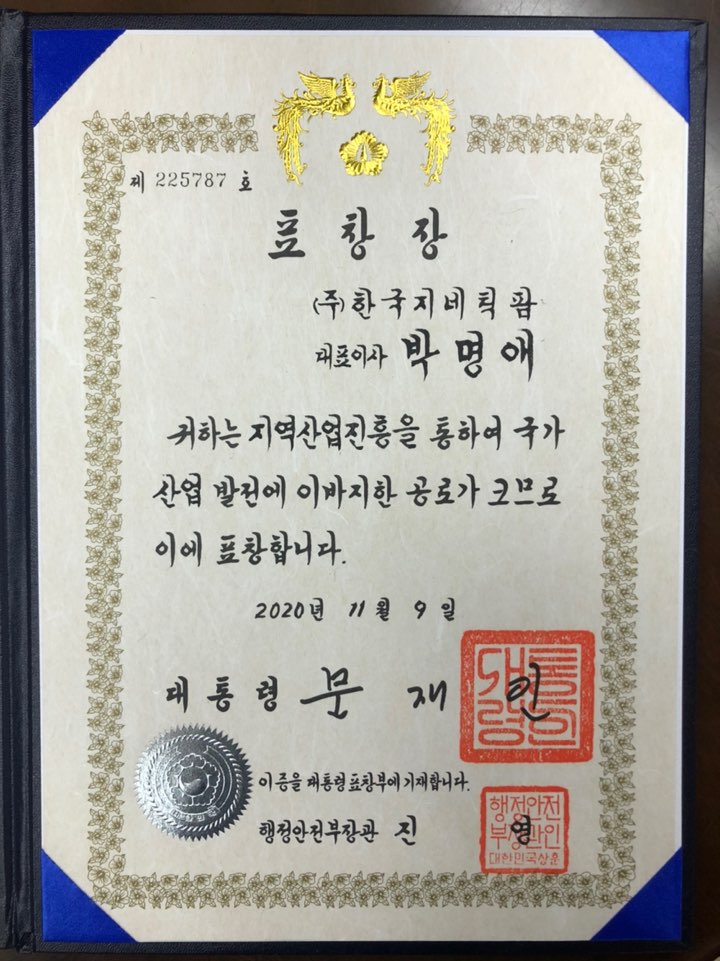 제 225787 호
표창장
(주)한국지네틱팜
대표이사 박명애
귀하는 지역산업진흥을 통하여 국가
산업 발전에 이바지한 공로가 크므로
이에 표창합니다.
2020년 11월 9일
대통령 문재인
대통령의인
이 증을 대통령표창부에 기재합니다.
행정안전부장관 진영
행정안전
부장관인
대한민국상훈